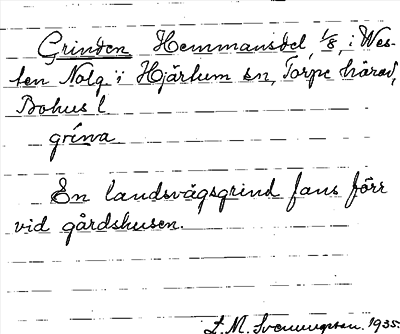 Grinden Hemmansdel, 1/8, i Wes-
ten Nolg i Hjärtum sn, Torpe härad,
Bohus l.
grı́nα
En landsvägsgrind fans förr
vid gårdshusen.
L. M. Svenungsson. 1935.